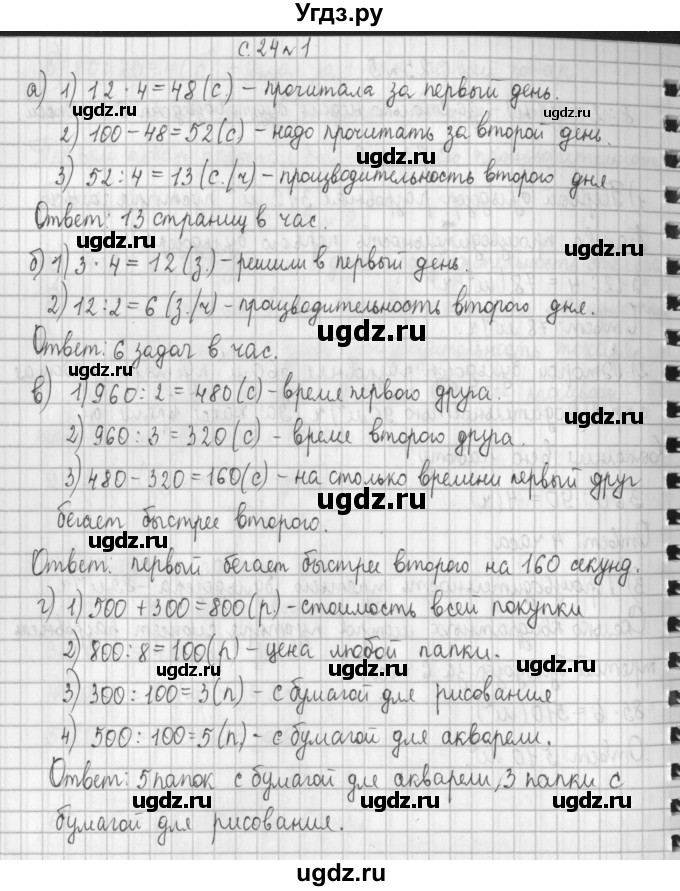 Угдз.ру
с. 24 №1
а) 1) 12 · 4 = 48 (с.) – прочитала за первый день.
ugdz.ru ugdz.ru
2) 100 – 48 = 52 (с) – надо прочитать за второй день.
ugdz.ru
3) 52 : 4 = 13 (с./ч) – производительность второго дня
Ответ: 13 страниц в час.
ugdz.ru ugdz.ru
б) 1) 3 · 4 = 12 (з.) – решили в первый день.
2) 12 : 2 = 6 (з./ч) – производительность второго дня.
ugdz.ru
Ответ: 6 задач в час.
ugdz.ru ugdz.ru
в) 1) 960 : 2 = 480 (с) – время первого друга.
2) 960 : 3 = 320 (с) – время второго друга.
ugdz.ru
3) 480 – 320 = 160 (с) – на столько времени первый друг
ugdz.ru
бегает быстрее второго.
ugdz.ru
Ответ: первый бегает быстрее второго на 160 секунд.
ugdz.ru
г) 1) 500 + 300 = 800 (р.) – стоимость всей покупки
2) 800 : 8 = 100 (п) – цена любой папки.
ugdz.ru ugdz.ru
3) 300 : 100 = 3 (п) – с бумагой для рисования
4) 500 : 100 = 5 (п) – с бумагой для акварели.
ugdz.ru
Ответ: 5 папок с бумагой для акварели, 3 папки с
ugdz.ru ugdz.ru
бумагой для рисования.
ugdz.ru